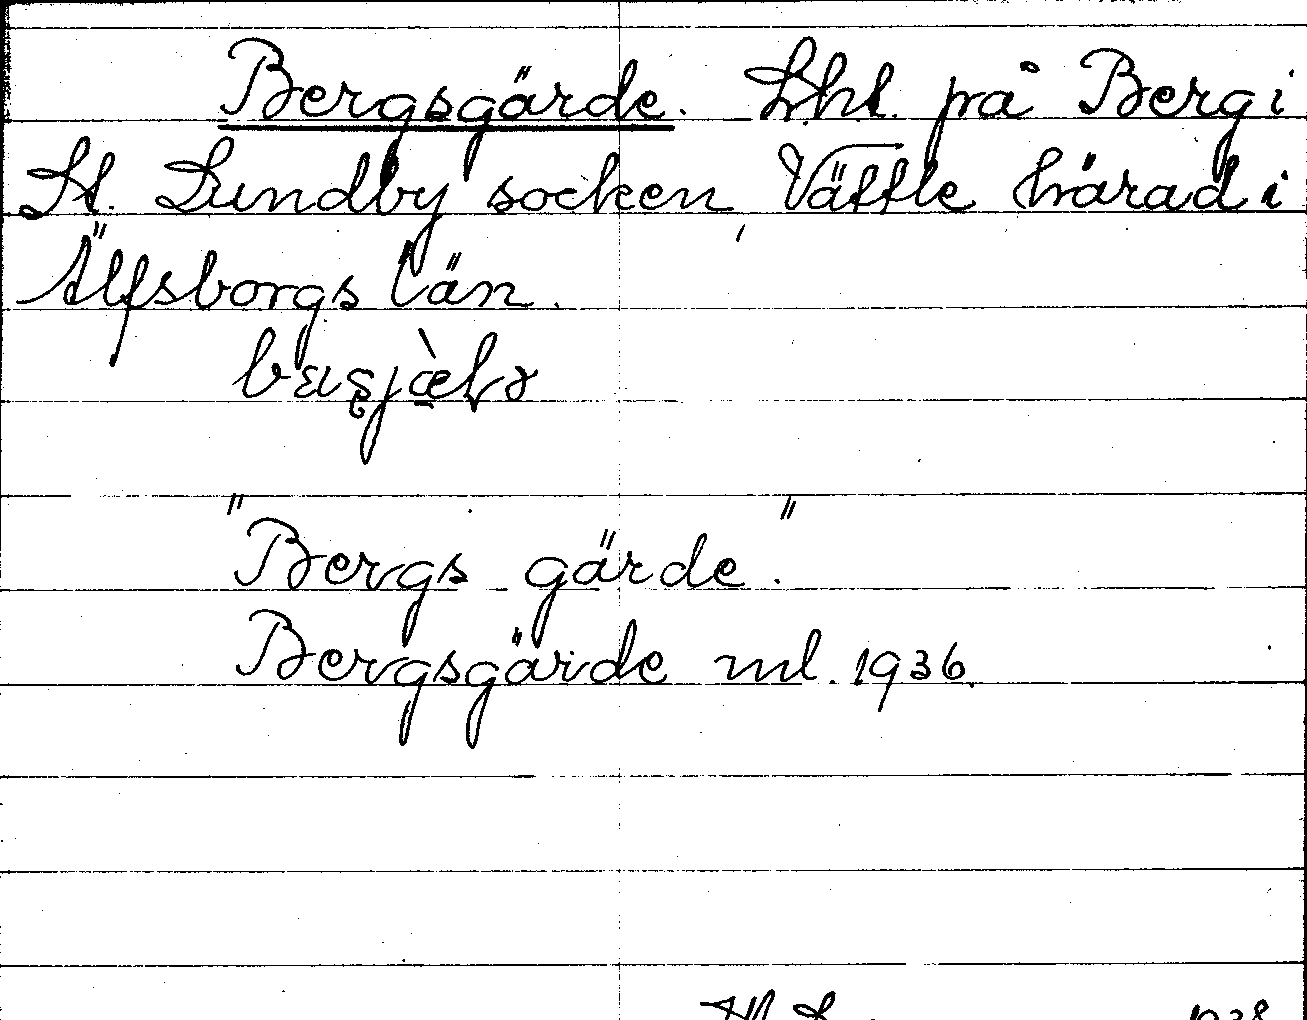 Bergsgärde. Lht. på Berg i
St. Lundby socken, Vättle härad i
Älfsborgs län.
"Bergs gärde".
Bergsgärde ml. 1936.
1938